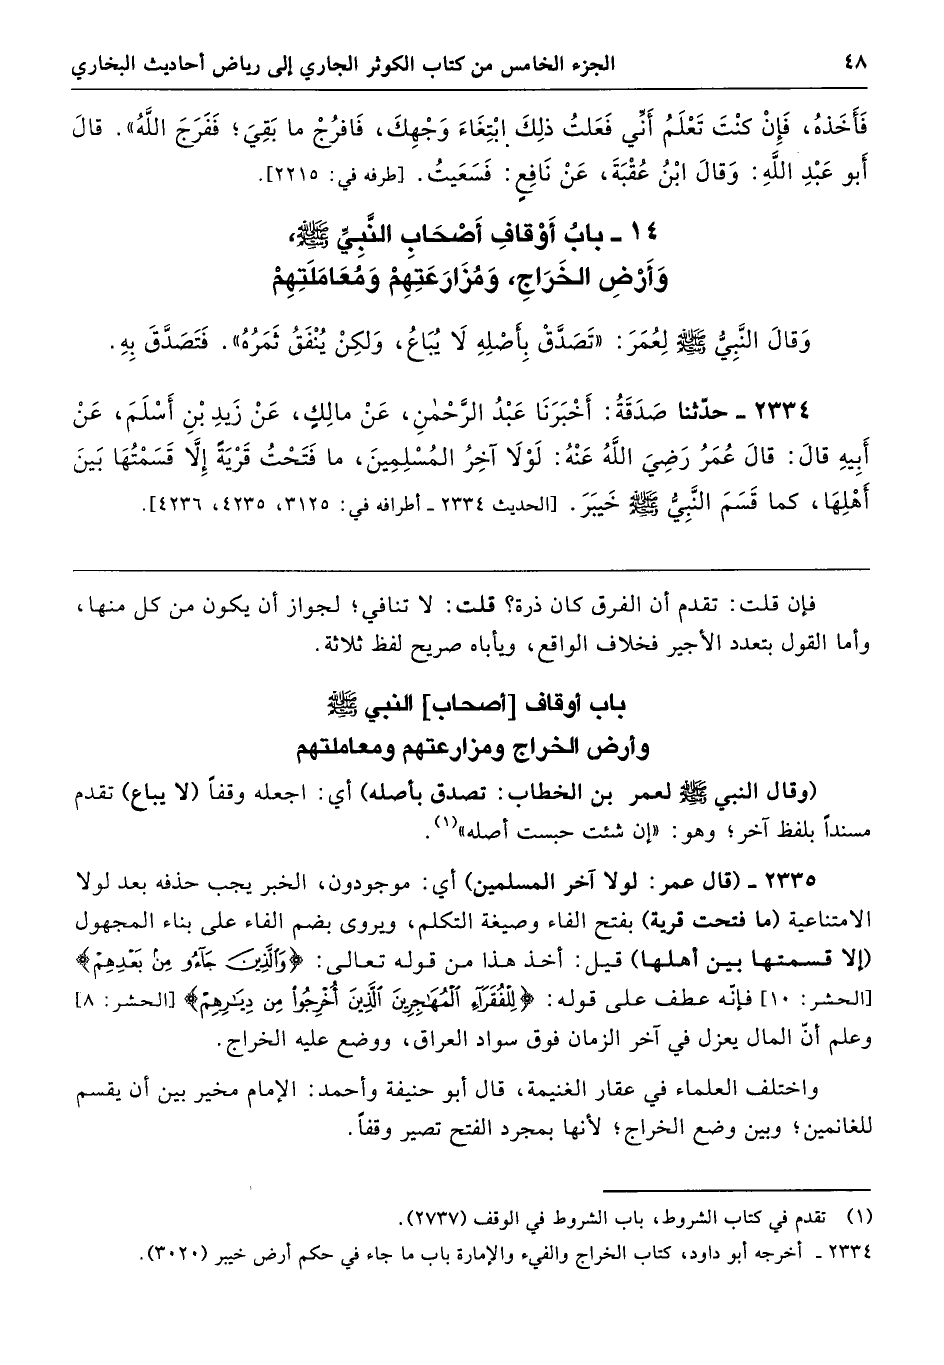 ٤٨ الجزء الخامس من كتاب الكوثر الجاري إلى رياض أحاديث البخاري
فَأَخَذَهُ، فَإِنْ كُنْتَ تَعْلَمُ أَنِّي فَعَلتُ ذلِكَ ابْتِغَاءَ وَجْهِكَ، فَافرُجْ ما بَقِيَ؛ فَفَرَجَ اللَّهُ». قالَ
أَبو عَبْدِ اللَّهِ: وَقالَ ابْنُ عُقْبَةَ، عَنْ نَافِعٍ: فَسَعَيتُ. [طرفه في: ٢٢١٥].
١٤ - بابُ أَوْقافِ أَصْحَابِ النَّبِيِّ ﷺ،
وَأَرْضِ الخَرَاجِ، وَمُزَارَعَتِهِمْ وَمُعَامَلَتِهِمْ
وَقالَ النَّبِيُّ ﷺ لِعُمَرَ: «تَصَدَّقْ بِأَصْلِهِ لَا يُبَاعُ، وَلكِنْ يُنْفَقُ ثَمَرُهُ». فَتَصَدَّقَ بِهِ.
٢٣٣٤ - حدّثنا صَدَقَةُ: أَخْبَرَنَا عَبْدُ الرَّحْمٰنِ، عَنْ مالِكٍ، عَنْ زَيدِ بْنِ أَسْلَمَ، عَنْ
أَبِيهِ قالَ: قالَ عُمَرُ رَضِيَ اللَّهُ عَنْهُ: لَوْلَا آخِرُ المُسْلِمِينَ، ما فَتَحْتُ قَرْيَةً إِلَّا قَسَمْتُهَا بَينَ
أَهْلِهَا، كما قَسَمَ النَّبِيُّ ﷺ خَيبَرَ. [الحديث ٢٣٣٤ - أطرافه في: ٣١٢٥، ٤٢٣٥، ٤٢٣٦].
فإن قلت: تقدم أن الفرق كان ذرة؟ قلت: لا تنافي؛ لجواز أن يكون من كل منها،
وأما القول بتعدد الأجير فخلاف الواقع، ويأباه صريح لفظ ثلاثة.
باب أوقاف [أصحاب] النبي ﷺ
وأرض الخراج ومزارعتهم ومعاملتهم
(وقال النبي ﷺ لعمر بن الخطاب: تصدق بأصله) أي: اجعله وقفاً (لا يباع) تقدم
مسنداً بلفظ آخر؛ وهو: «إن شئت حبست أصله»(١).
٢٣٣٥ - (قال عمر: لولا آخر المسلمين) أي: موجودون، الخبر يجب حذفه بعد لولا
الامتناعية (ما فتحت قرية) بفتح الفاء وصيغة التكلم، ويروى بضم الفاء على بناء المجهول
(إلا قسمتها بين أهلها) قيل: أخذ هذا من قوله تعالى: ﴿وَالَّذِينَ جَآءُو مِنۢ بَعْدِهِمْ﴾
[الحشر: ١٠] فإنّه عطف على قوله: ﴿لِلْفُقَرَآءِ ٱلْمُهَٰجِرِينَ ٱلَّذِينَ أُخْرِجُواْ مِن دِيَٰرِهِمْ﴾ [الحشر: ٨]
وعلم أنّ المال يعزل في آخر الزمان فوق سواد العراق، ووضع عليه الخراج.
واختلف العلماء في عقار الغنيمة، قال أبو حنيفة وأحمد: الإمام مخير بين أن يقسم
للغانمين؛ وبين وضع الخراج؛ لأنها بمجرد الفتح تصير وقفاً.
(١) تقدم في كتاب الشروط، باب الشروط في الوقف (٢٧٣٧).
٢٣٣٤ - أخرجه أبو داود، كتاب الخراج والفيء والإمارة باب ما جاء في حكم أرض خيبر (٣٠٢٠).